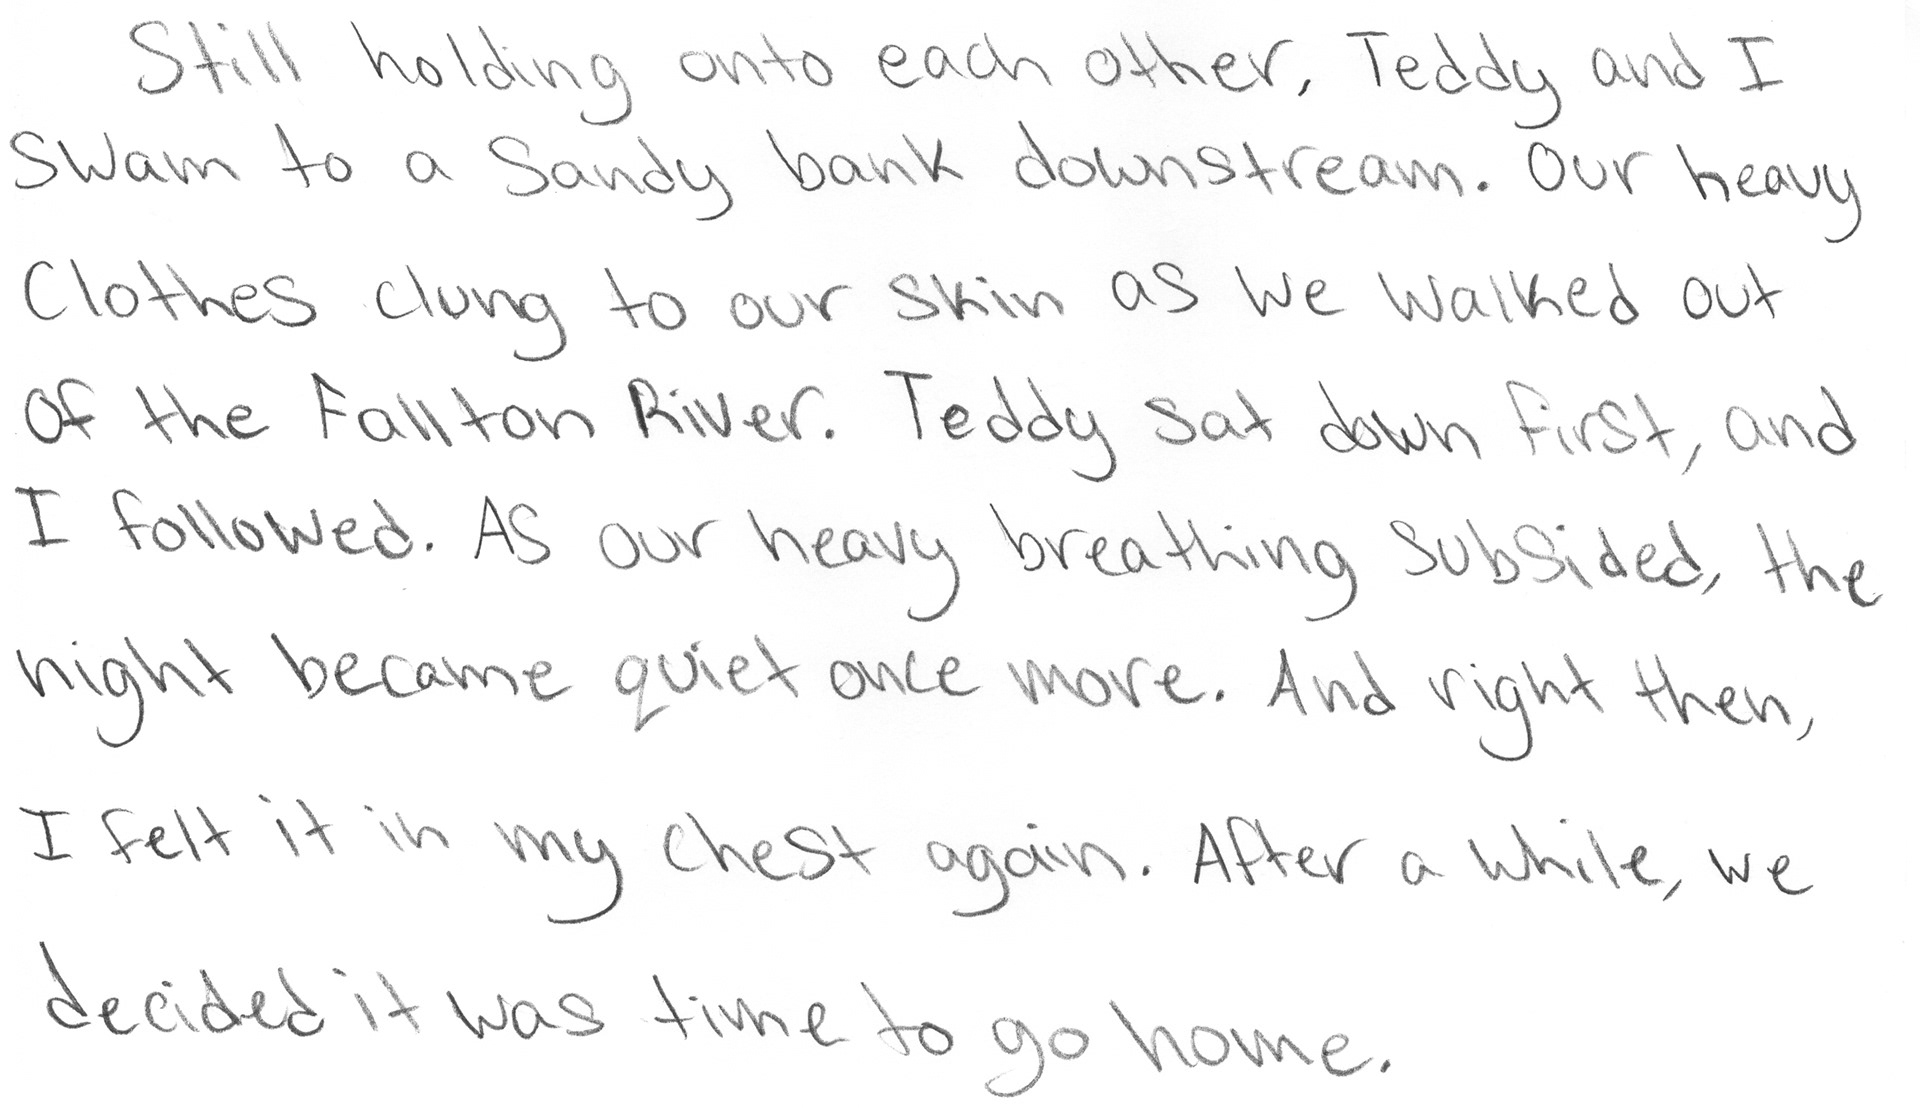 Still holding onto each other, Teddy and I
swam to a sandy bank downstream. Our heavy
clothes clung to our skin as we walked out
of the Fallton River. Teddy sat down first, and
I followed. As our heavy breathing subsided, the
night became quiet once more. And right then,
I felt it in my chest again. After a while, we
decided it was time to go home.